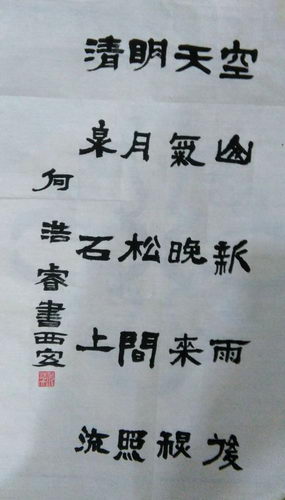 空山新雨後
天氣晚来秋
明月松間照
清泉石上流
何浩睿書西安